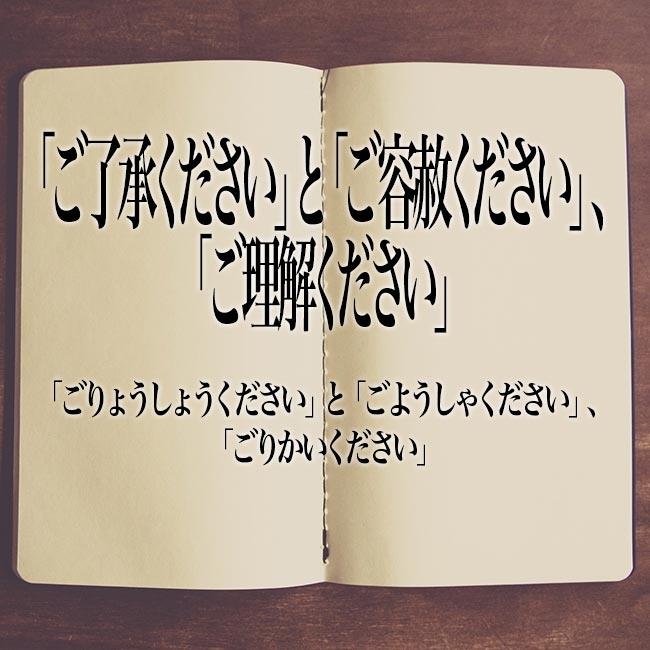 「ご了承ください」と「ご容赦ください」、
「ご理解ください」
「ごりょうしょうください」と「ごようしゃください」、
「ごりかいください」